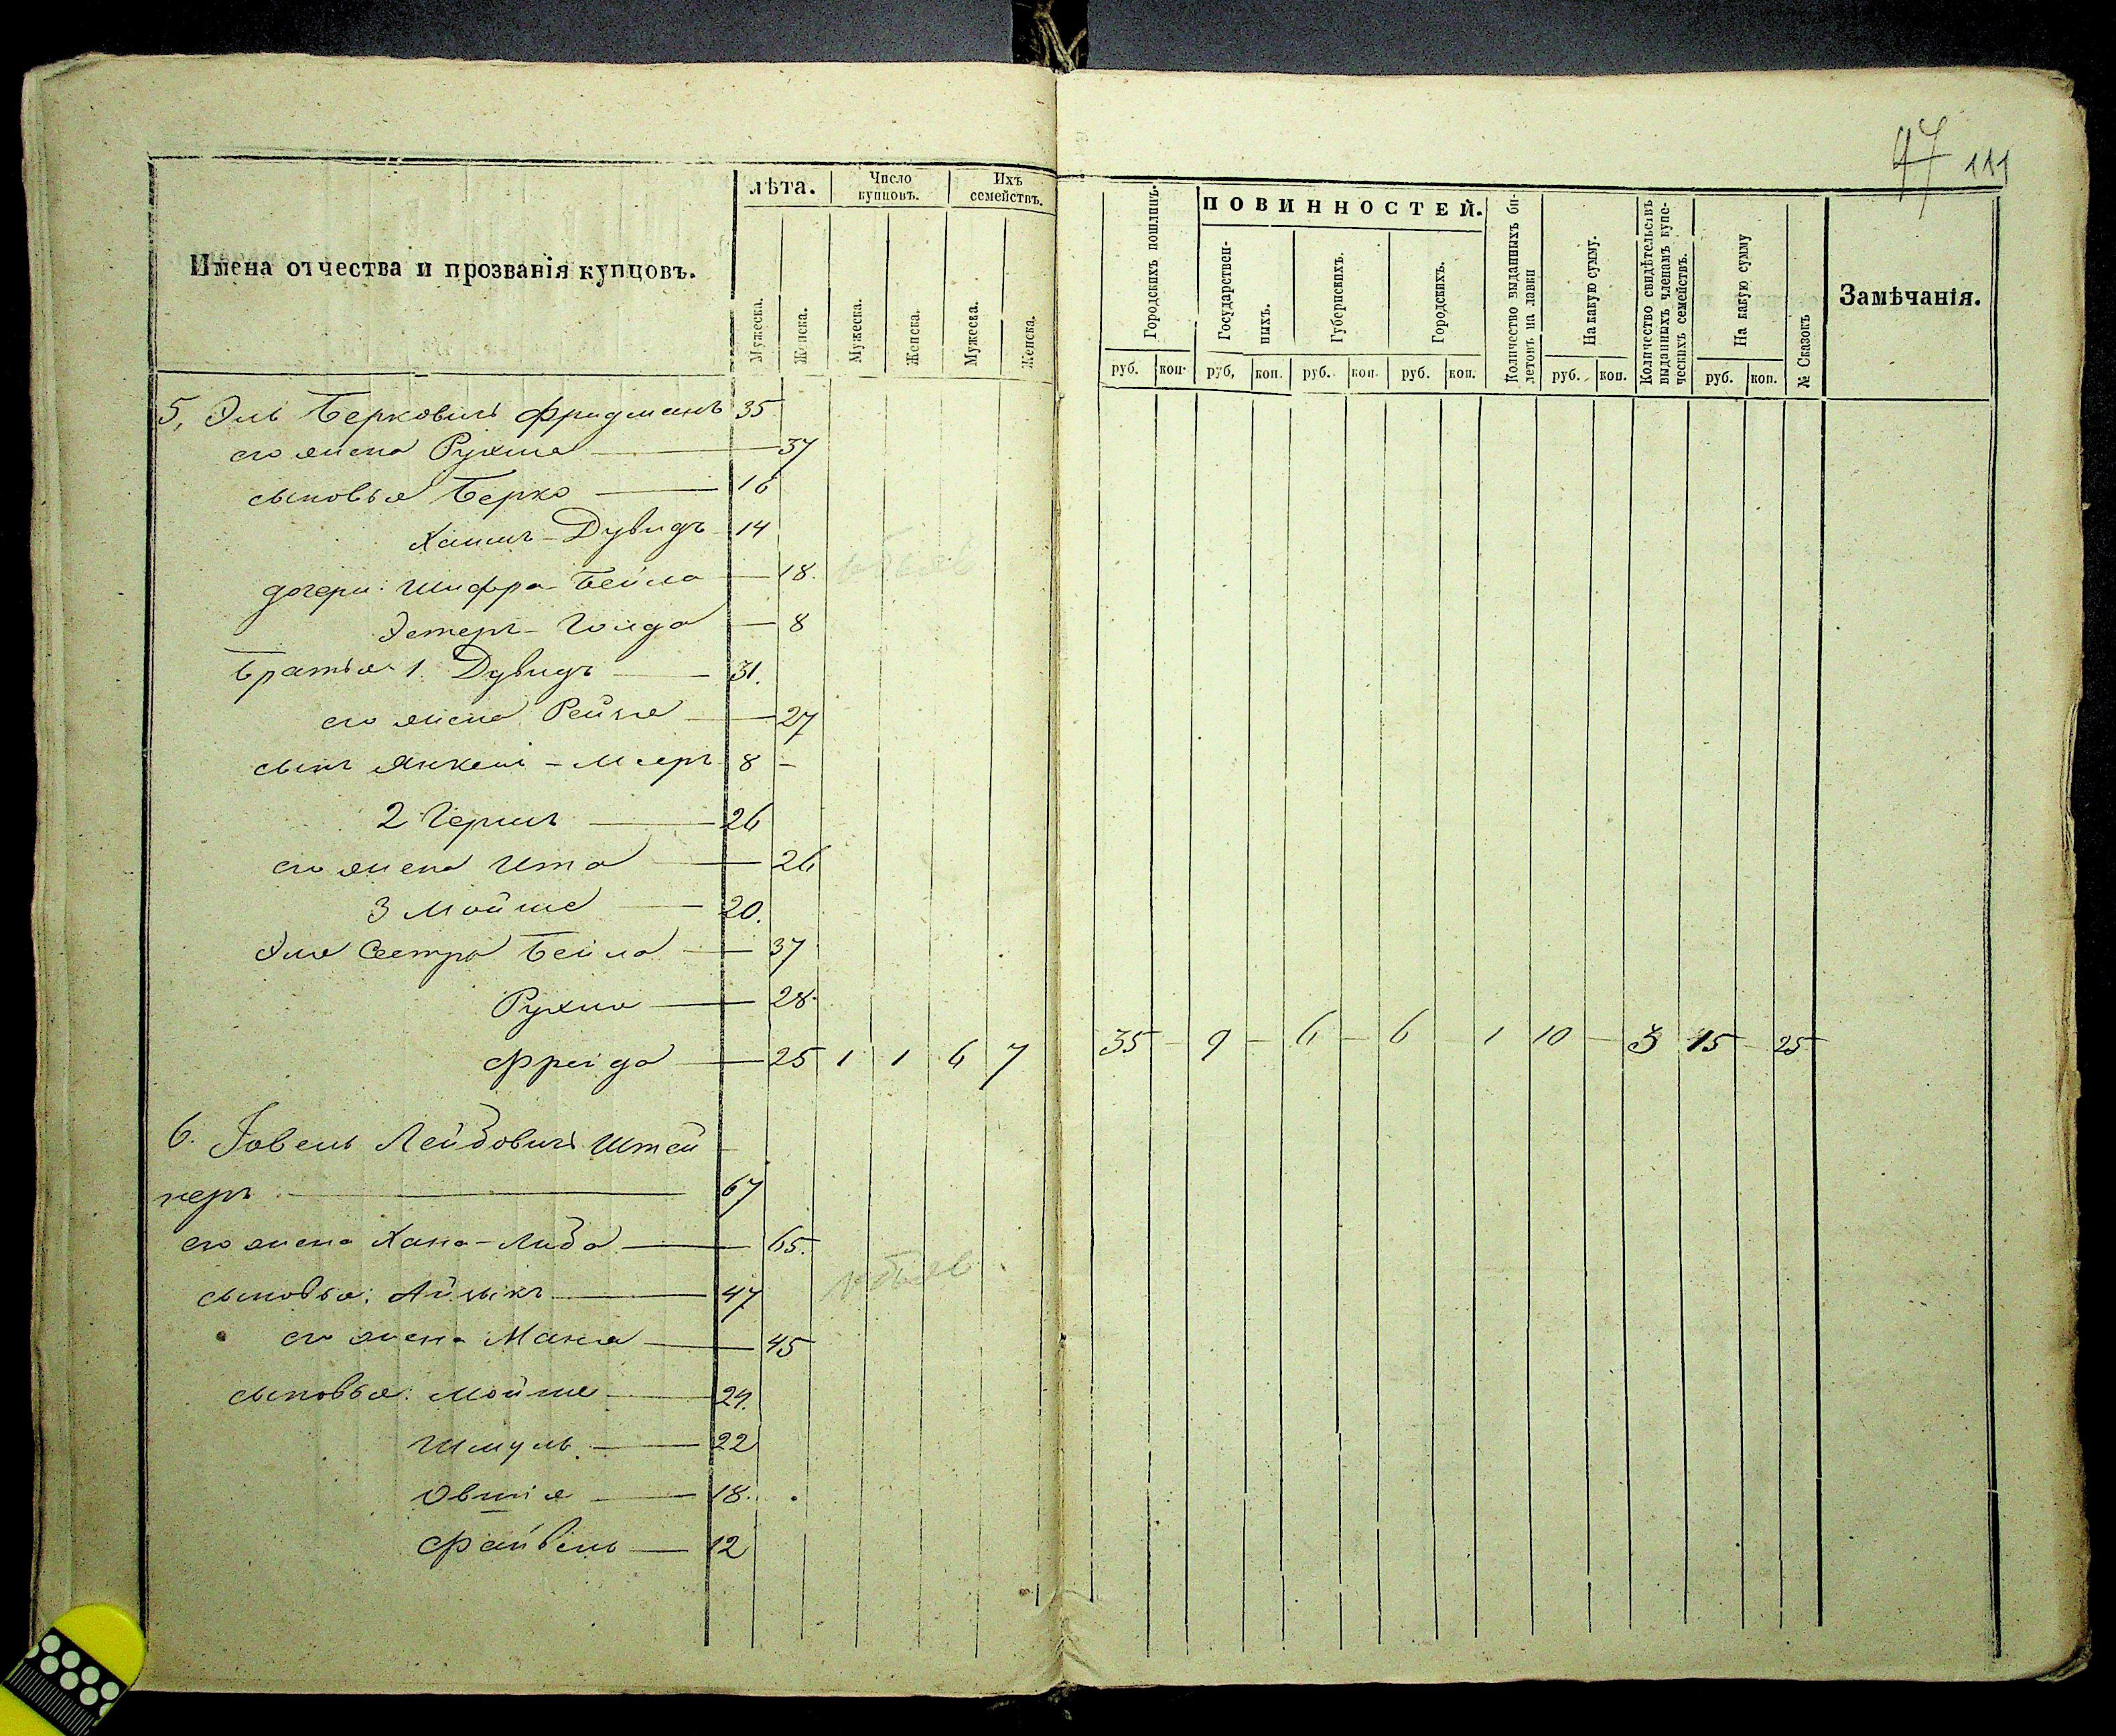 47 111
Имена отчества и прозванія купцовъ.
лѣта.
Число купцовъ.
Ихъ семействъ.
Мужеска.
Женска.
Мужеска.
Женска.
Мужеска.
Женска.
Городскихъ пошлинъ.
ПОВИННОСТЕЙ.
Государственныхъ.
Губернскихъ.
Городскихъ.
Количество выданныхъ билетовъ на лавки
На какую сумму.
Количество свидѣтельствъ выданныхъ членамъ купеческихъ семействъ.
На какую сумму
№ Сказокъ
Замѣчанія.
руб. коп. руб, коп. руб. коп. руб. коп. руб. коп. руб. коп.
5, Эль Берковичъ Фридманъ 35
его жена Рухля — 37
сыновья Берко — 16
Хаимъ-Дувидъ 14
дочери: Шифра-Бейла — 18.
Эстеръ-Голда — 8
Братья 1. Дувидъ — 31.
его жена Рейзя — 27
сынъ Янкель-Мееръ 8 -
2 Гершъ — 26
его жена Ита — 26
3 Мойше — 20.
Эля Сестры Бейла — 37
Рухля — 28.
Фрейда — 25 1 1 6 7 35 - 9 - 6 - 6 - 1 10 - 3 15 - 25
6. Іовель Лейбовичъ Штей
неръ — 67
его жена Хана-Либа — 65.
сыновья: Айзыкъ — 47
его жена Маня — 45
сыновья: Мойше — 24.
Шмуль — 22
Овшія — 18.
Файвель — 12